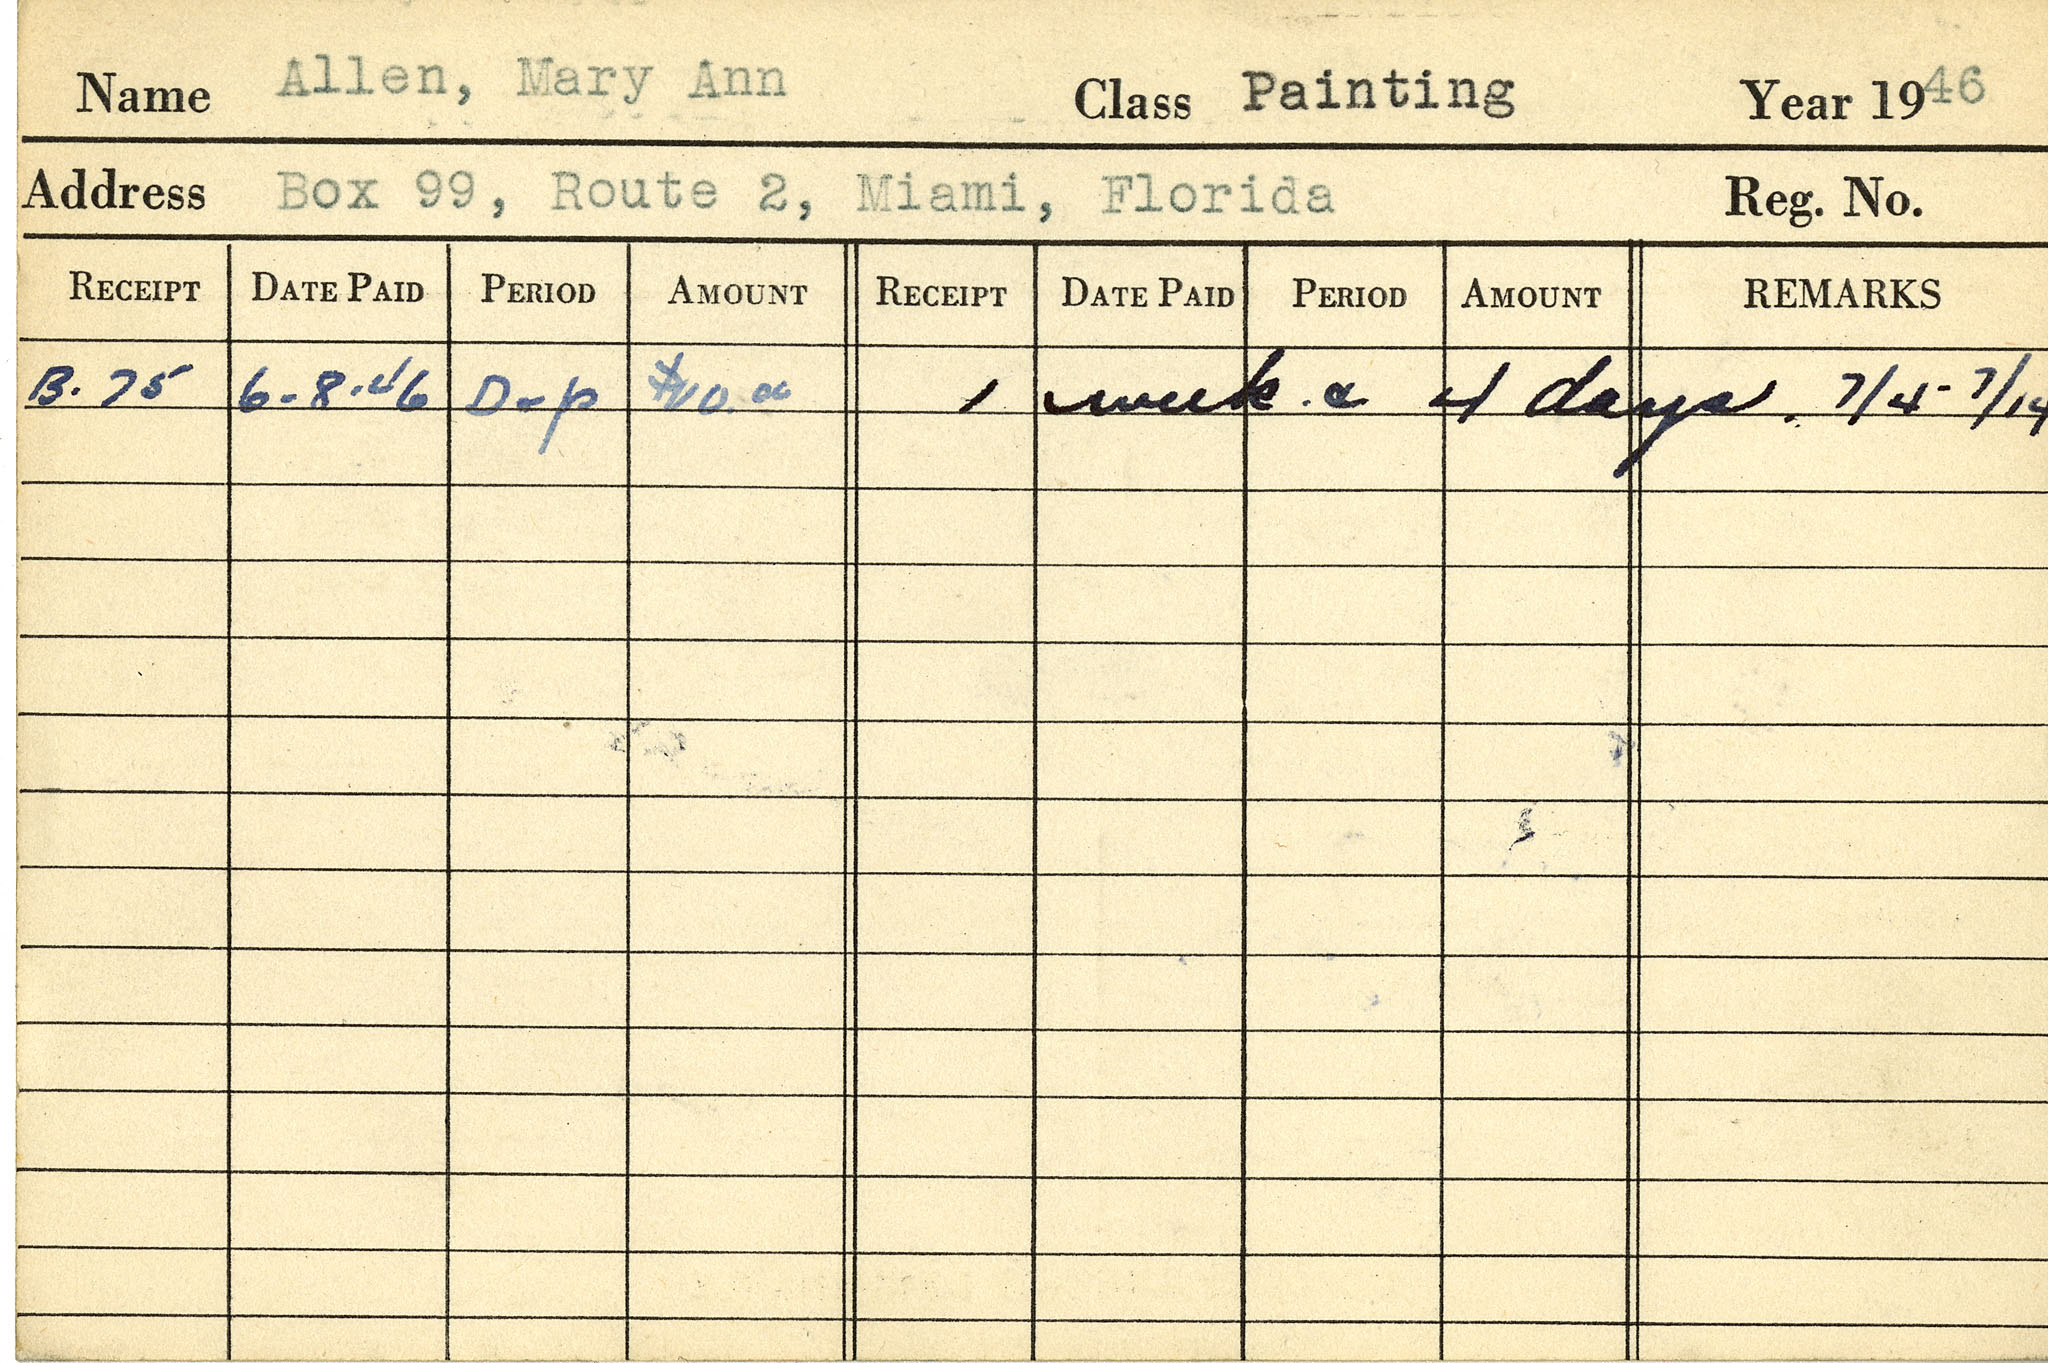 Name Allen, Mary Ann Class Painting Year 1946
Address Box 99, Route 2, Miami, Florida Reg. No.
RECEIPT DATE PAID PERIOD AMOUNT RECEIPT DATE PAID PERIOD AMOUNT REMARKS
B. 75 6-8-46 Dep $10.00 1 week & 4 days. 7/4-7/14